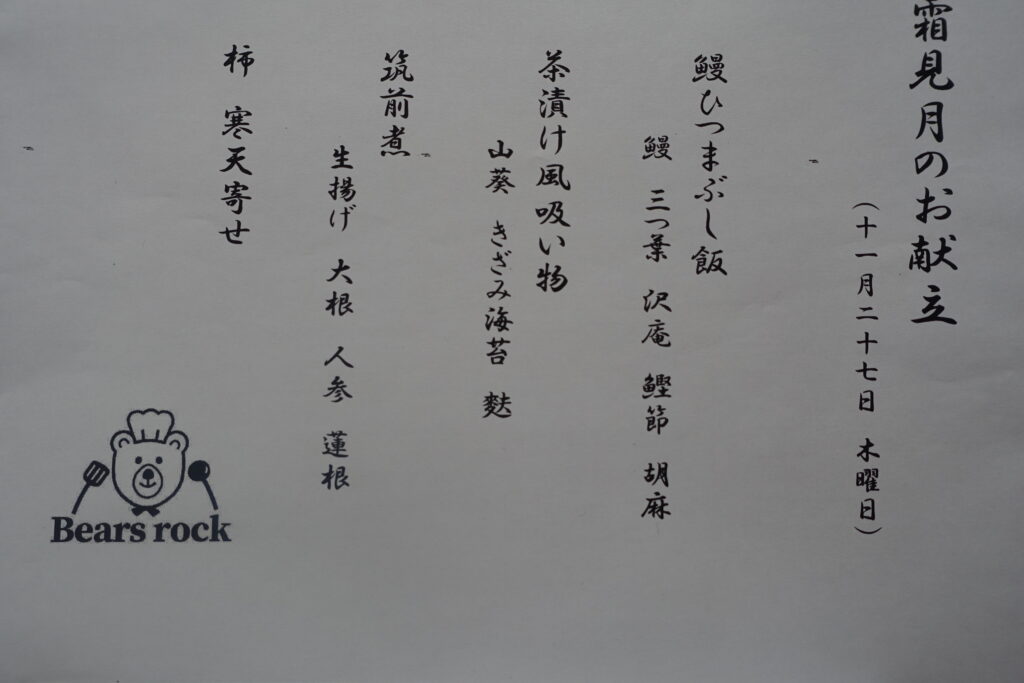 霜見月のお献立
（十一月二十七日 木曜日）
鰻ひつまぶし飯
鰻 三つ葉 沢庵 鰹節 胡麻
茶漬け風吸い物
山葵 きざみ海苔 麩
筑前煮
生揚げ 大根 人参 蓮根
柿 寒天寄せ
Bears rock